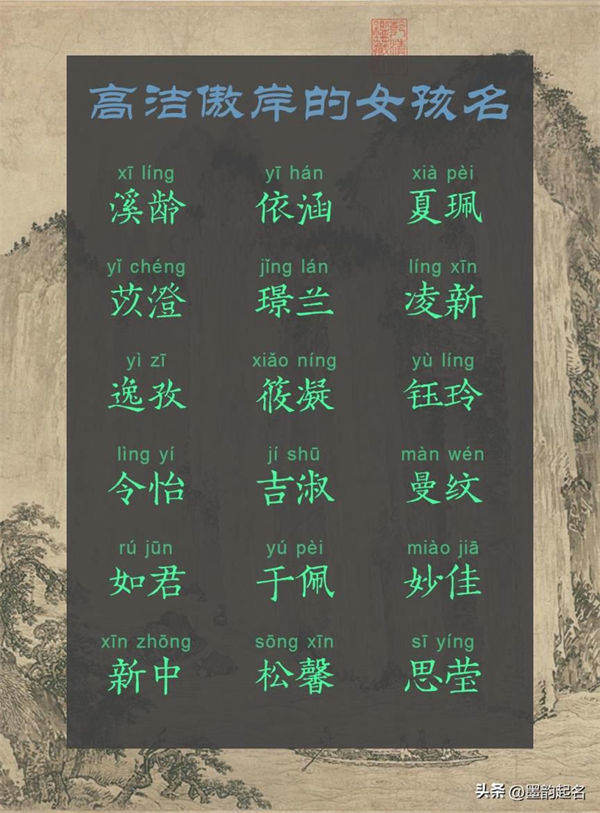 高洁傲岸的女孩名
xī líng yī hán xià pèi
溪龄 依涵 夏珮
yǐ chéng jǐng lán líng xīn
苡澄 璟兰 凌新
yì zī xiǎo níng yù líng
逸孜 筱凝 钰玲
lìng yí jí shū màn wén
令怡 吉淑 曼纹
rú jūn yú pèi miào jiā
如君 于佩 妙佳
xīn zhōng sōng xīn sī yíng
新中 松馨 思莹
头条 @墨韵起名